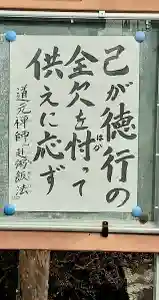 己が徳行の
全欠を忖って
はか
供えに応ず
道元禅師「赴粥飯法」